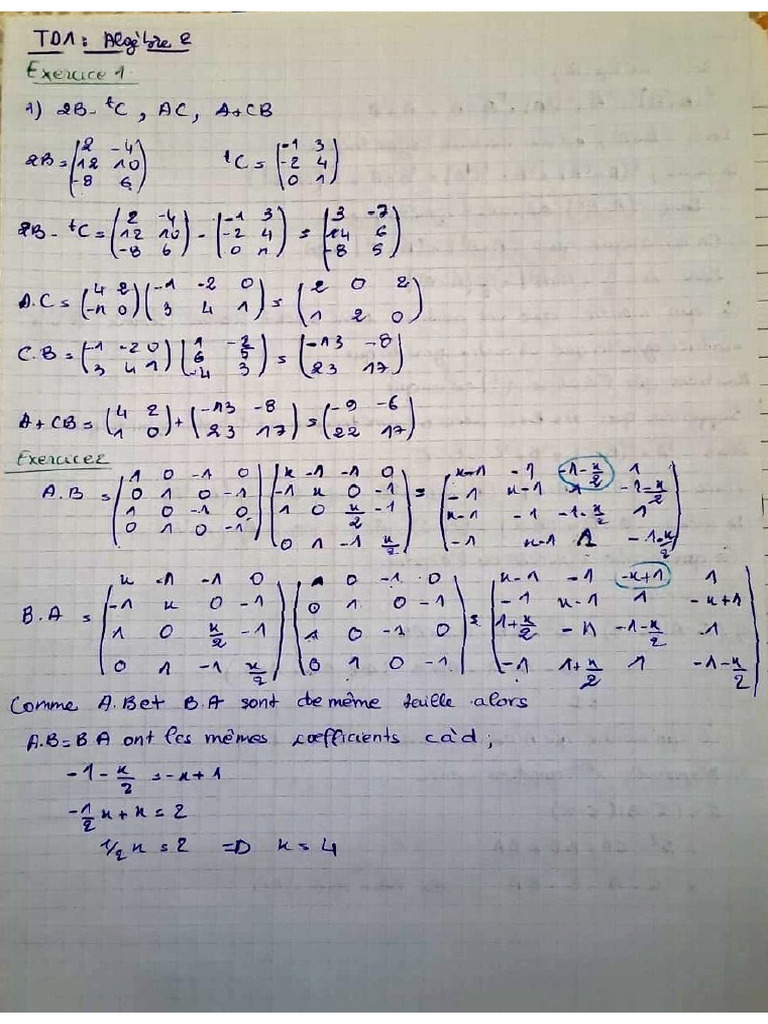 TD1: Algèbre 2
Exercice 1
1) 2B - ᵗC , AC , A+CB
2B = (2 -4; 12 10; -8 6) ᵗC = (-1 3; -2 4; 0 1)
2B - ᵗC = (2 -4; 12 10; -8 6) - (-1 3; -2 4; 0 1) = (3 -7; 14 6; -8 5)
A.C = (4 2; -1 0)(-1 -2 0; 3 4 1) = (2 0 2; 1 2 0)
C.B = (-1 -2 0; 3 4 1)(1 -2; 6 5; -4 3) = (-13 -8; 23 17)
A + CB = (4 2; 1 0) + (-13 -8; 23 17) = (-9 -6; 22 17)
Exercice 2
A.B = (1 0 -1 0; 0 1 0 -1; 1 0 -1 0; 0 1 0 -1)(x -1 -1 0; -1 x 0 -1; 1 0 x/2 -1; 0 1 -1 x/2) = (x-1 -1 -1-x/2 1; -1 x-1 1 -1-x/2; x-1 -1 -1-x/2 1; -1 x-1 1 -1-x/2)
B.A = (x -1 -1 0; -1 x 0 -1; 1 0 x/2 -1; 0 1 -1 x/2)(1 0 -1 0; 0 1 0 -1; 1 0 -1 0; 0 1 0 -1) = (x-1 -1 -x+1 1; -1 x-1 1 -x+1; 1+x/2 -1 -1-x/2 1; -1 1+x/2 1 -1-x/2)
Comme A.B et B.A sont de même taille alors
A.B = BA ont les mêmes coefficients càd ;
-1 - x/2 = -x + 1
-1/2 x + x = 2
1/2 x = 2 => x = 4